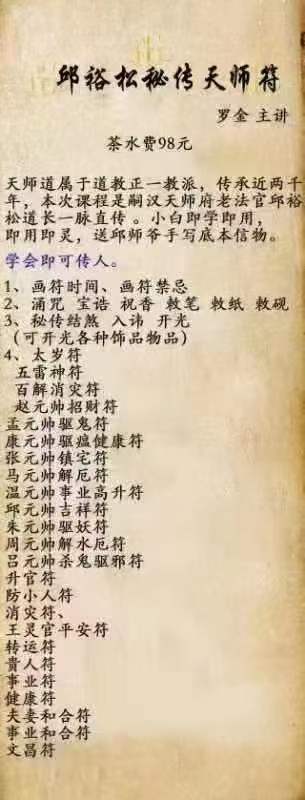 邱裕松秘传天师符
罗金 主讲
茶水费98元
天师道属于道教正一教派，传承近两千
年，本次课程是嗣汉天师府老法官邱裕
松道长一脉直传 。小白即学即用，
即用即灵，送邱师爷手写底本信物。
学会即可传人。
1、画符时间、画符禁忌
2、涌咒 宝诰 祝香 敕笔 敕纸 敕砚
3、秘传结煞 入讳 开光
（可开光各种饰品物品）
4、太岁符
五雷神符
百解消灾符
赵元帅招财符
孟元帅驱鬼符
康元帅驱瘟健康符
张元帅镇宅符
马元帅解厄符
温元帅事业高升符
邱元帅吉祥符
朱元帅驱妖符
周元帅解水厄符
吕元帅杀鬼驱邪符
升官符
防小人符
消灾符、
王灵官平安符
转运符
贵人符
事业符
健康符
夫妻和合符
事业和合符
文昌符